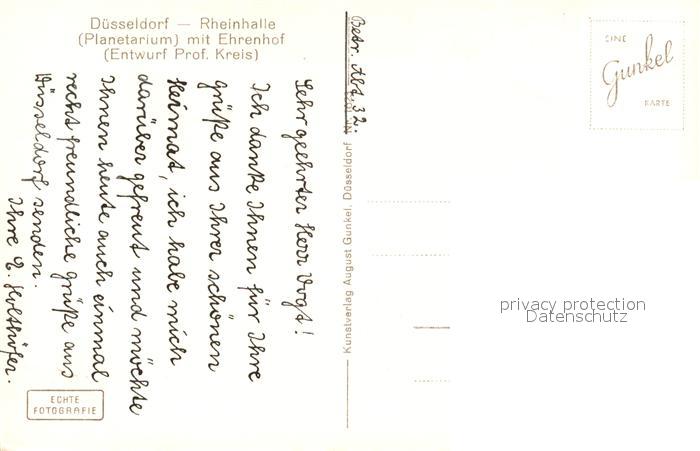 Düsseldorf — Rheinhalle
(Planetarium) mit Ehrenhof
(Entwurf Prof. Kreis)
Sehr geehrter Herr Vogt!
Ich danke Ihnen für Ihre
grüße aus Ihrer schönen
Heimat, ich habe mich
darüber gefreut und möchte
Ihnen heute auch einmal
recht freundliche grüße aus
Düsseldorf senden.
Ihre E. Holthöfer.
ECHTE
FOTOGRAFIE
Betr. Abt. 32.
Kunstverlag August Gunkel, Düsseldorf
EINE
Gunkel
KARTE
privacy protection
Datenschutz